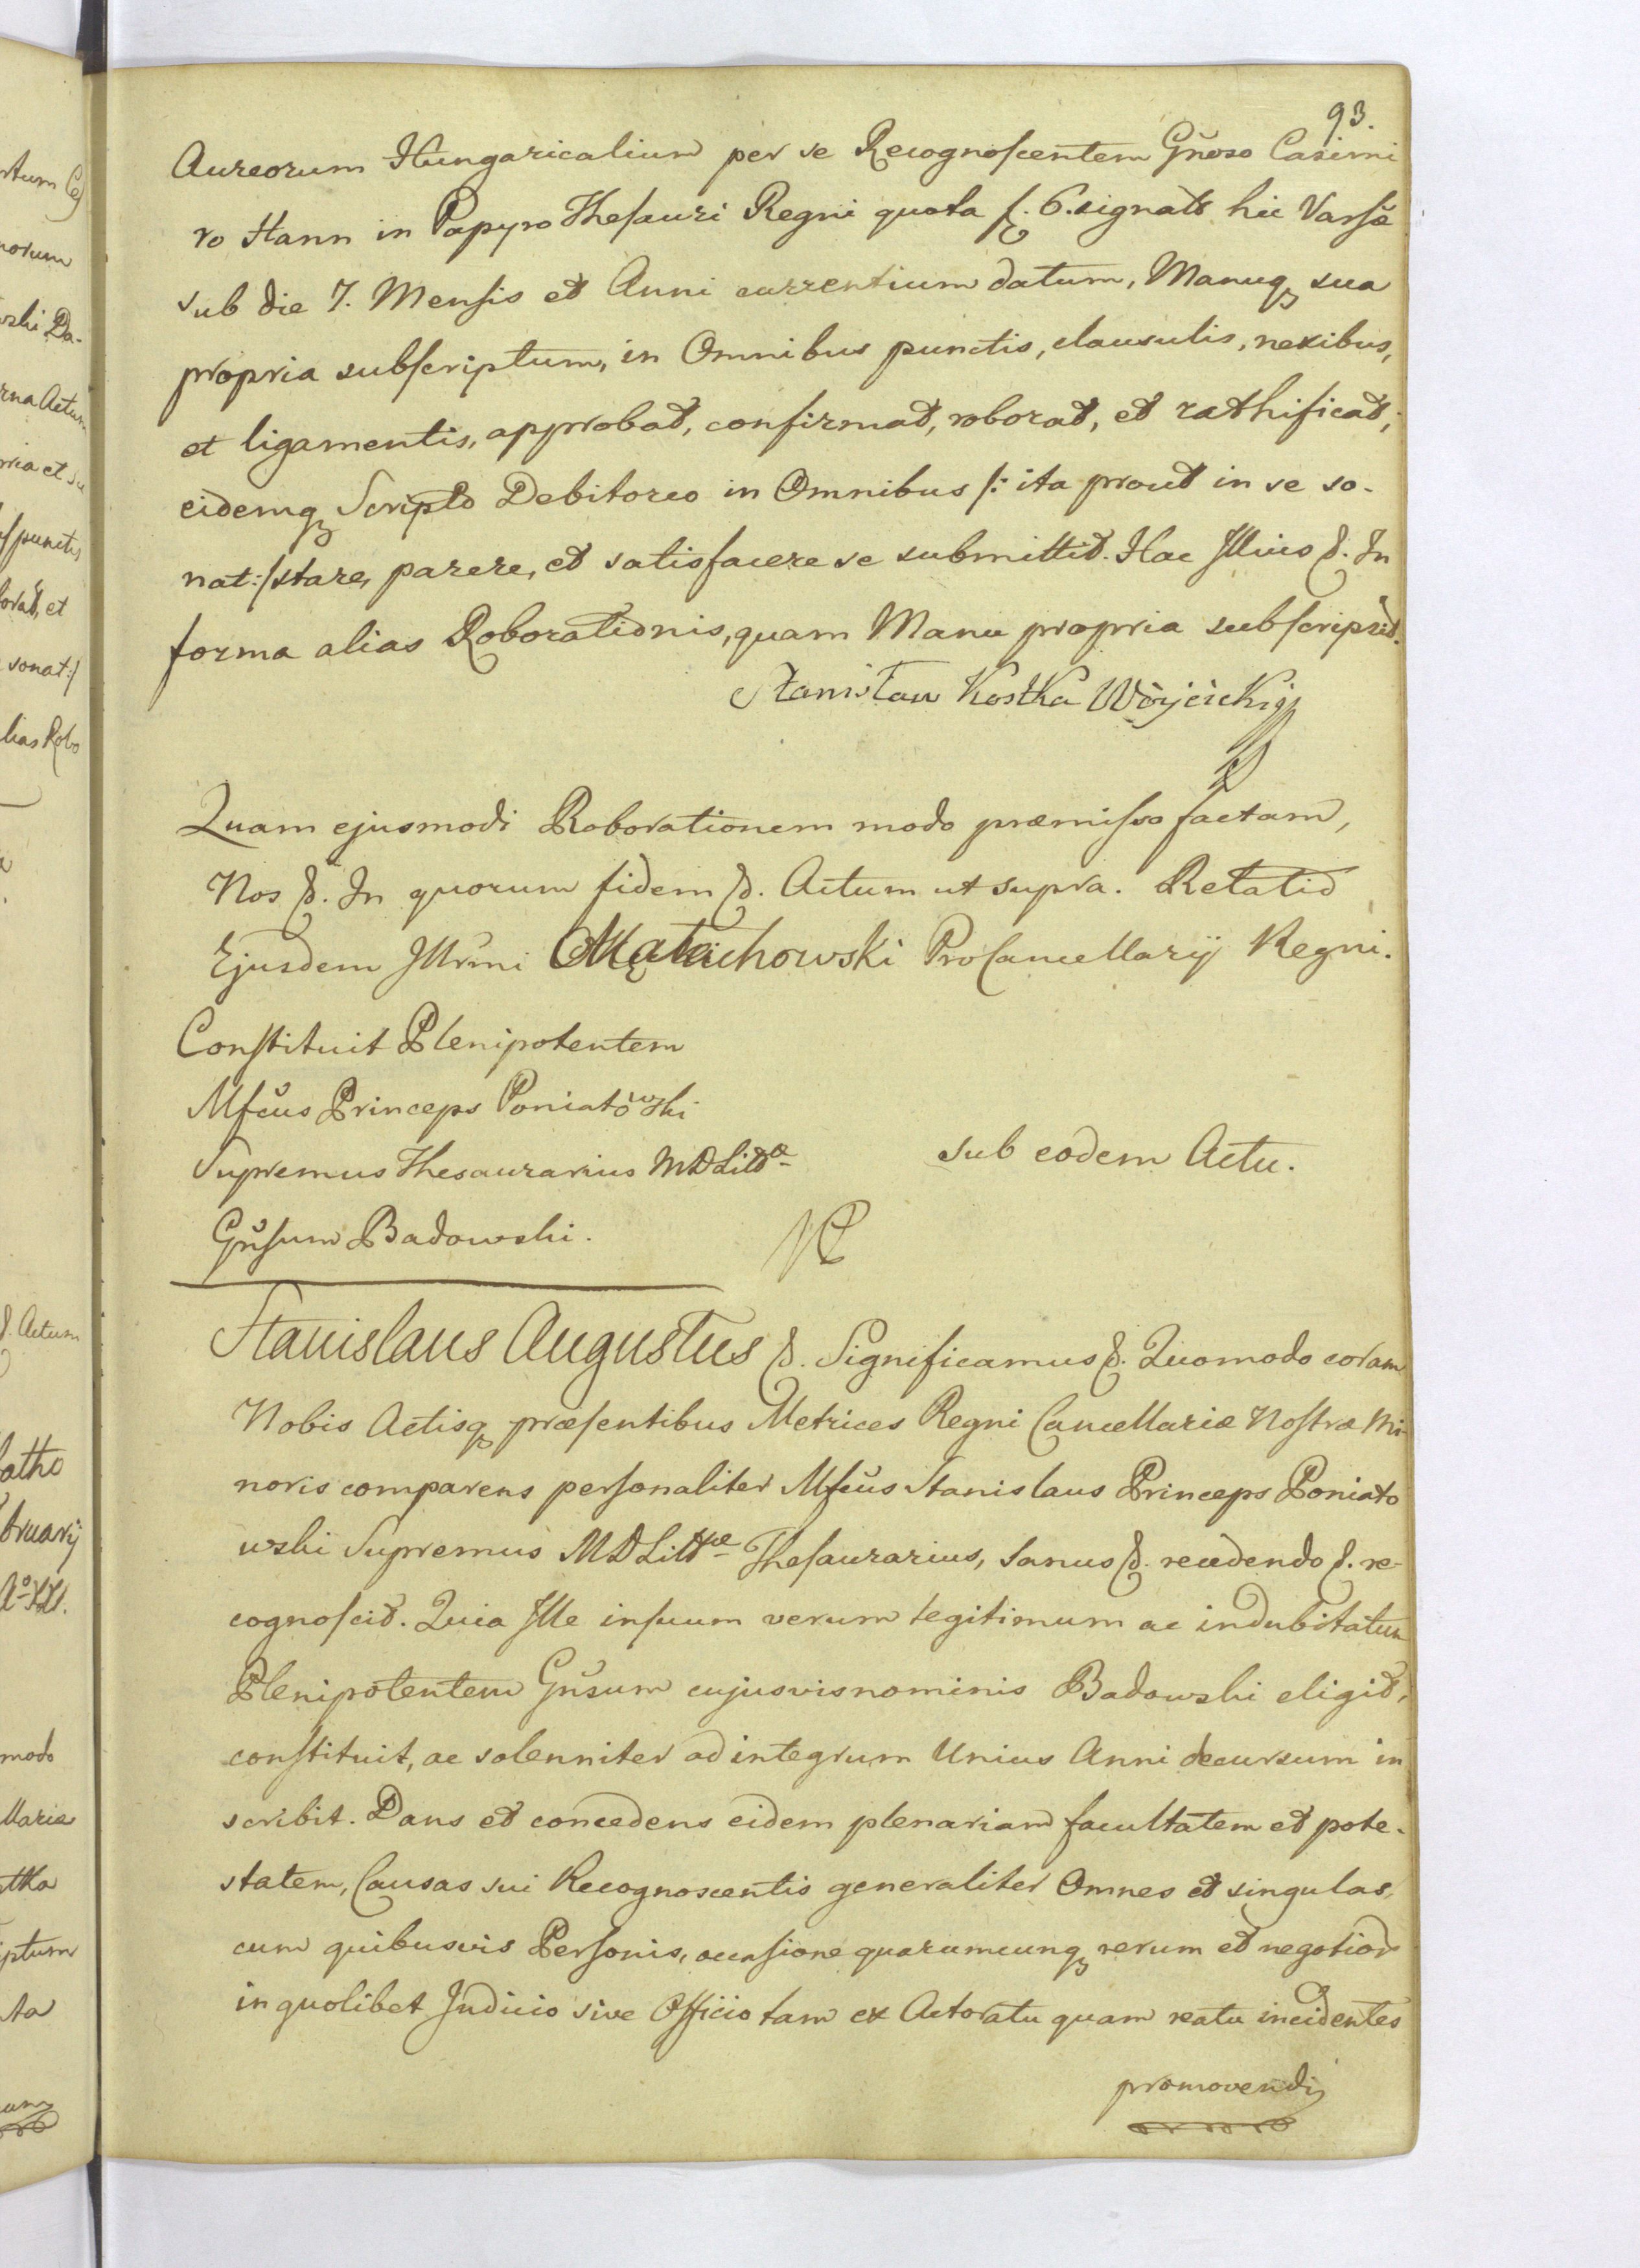 93.
Aureorum Hungaricalium per se Recognoscentem Gñoso Casimi
ro Hann in Papyro Thesauri Regni quota f. 6. signato hic Varsæ
sub die 7. Mensis et Anni currentium datum, Manuq sua
propria subscriptum, in Omnibus punctis, clausulis, nexibus,
et ligamentis, approbat, confirmat, roborat, et rathificat,
eidemq Scripto Debitoreo in Omnibus /: ita prout in se so-
nat:/ stare, parere, et satisfacere se submittit. Hac Illius &. In
forma alias Roborationis, quam Manu propria subscripsit.
Stanisław Kostka Wòyjcicki
Quam ejusmodi Roborationem modo præmisso factam,
Nos &. In quorum fidem &. Actum ut supra. Relatio
Ejusdem Illrmi Małachowski ProCancellarij Regni.
Constituit Plenipotentem
Mfcus Princeps Poniatowski
Supremus Thesaurarius MDLittæ
sub eodem Actu.
Gñsum Badowski.
Stanislaus Augustus &. Significamus &. Quomodo coram
Nobis Actisq præsentibus Metrices Regni Cancellariæ Nostræ Mi
noris comparens personaliter Mfcus Stanislaus Princeps Poniato
wski Supremus MDLittæ Thesaurarius, Sanus &. recedendo &. re-
cognoscit. Quia Ille insuum verum legitimum ac indubitatum
Plenipotentem Gñsum cujusvis nominis Badowski eligit,
constituit, ac solenniter ad integrum Unius Anni decursum in
scribit. Dans et concedens eidem plenariam facultatem et pote-
statem, Causas sui Recognoscentis generaliter Omnes et singulas,
cum quibusvis Personis, occasione quarumcunq rerum et negotior
in quolibet Judicio sive Officio tam ex Actoratu quam reatu incidentes
promovendi